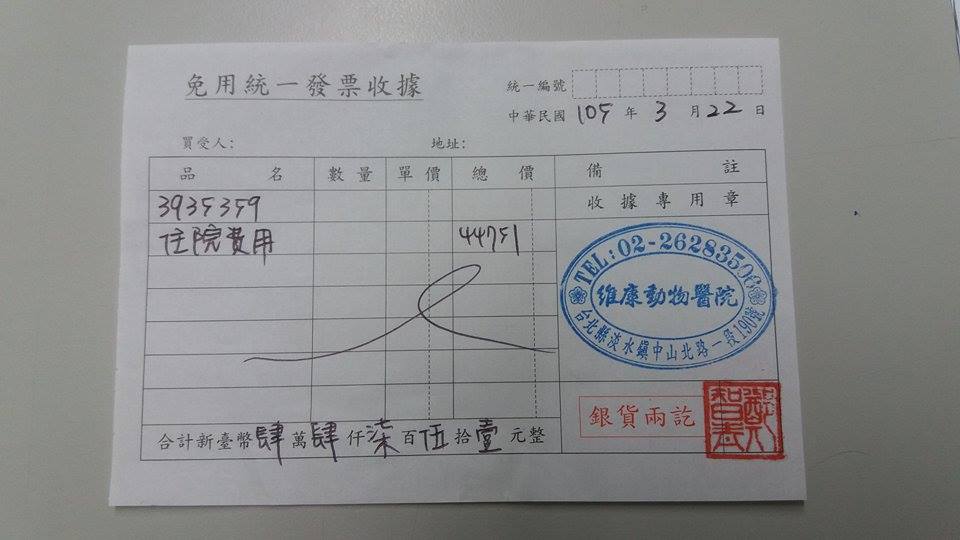 免用統一發票收據
統一編號
中華民國 105 年 3 月 22 日
買受人: 地址:
品名 數量 單價 總價 備註
3935359 收據專用章
住院費用 44751
TEL:02-26283508
維康動物醫院
台北縣淡水鎮中山北路一段190號
銀貨兩訖
合計新臺幣肆萬肆仟柒百伍拾壹元整